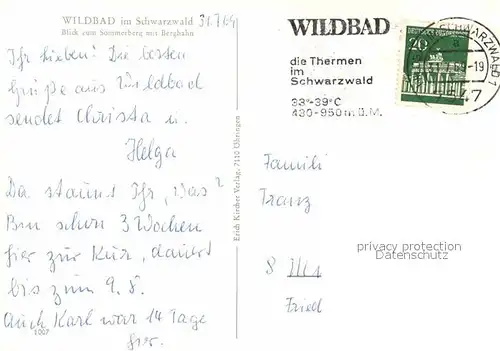 WILDBAD im Schwarzwald 31.7.69
Blick zum Sommerberg mit Bergbahn
Ihr Lieben! Die besten
Grüße aus Wildbad
sendet Christa u.
Helga
Da staunt Ihr, was?
Bin schon 3 Wochen
hier zur Kur, dauert
bis zum 9. 8.
Auch Karl war 14 Tage
hier.
1007
Erich Kircher Verlag, 7110 Öhringen
WILDBAD
die Thermen
im
Schwarzwald
33°-39°C
430-950 m ü.M.
20
DEUTSCHE BUNDESPOST
SCHWARZWALD 1
a
-19
Famili
Franz
privacy protection
Datenschutz
8
Fried